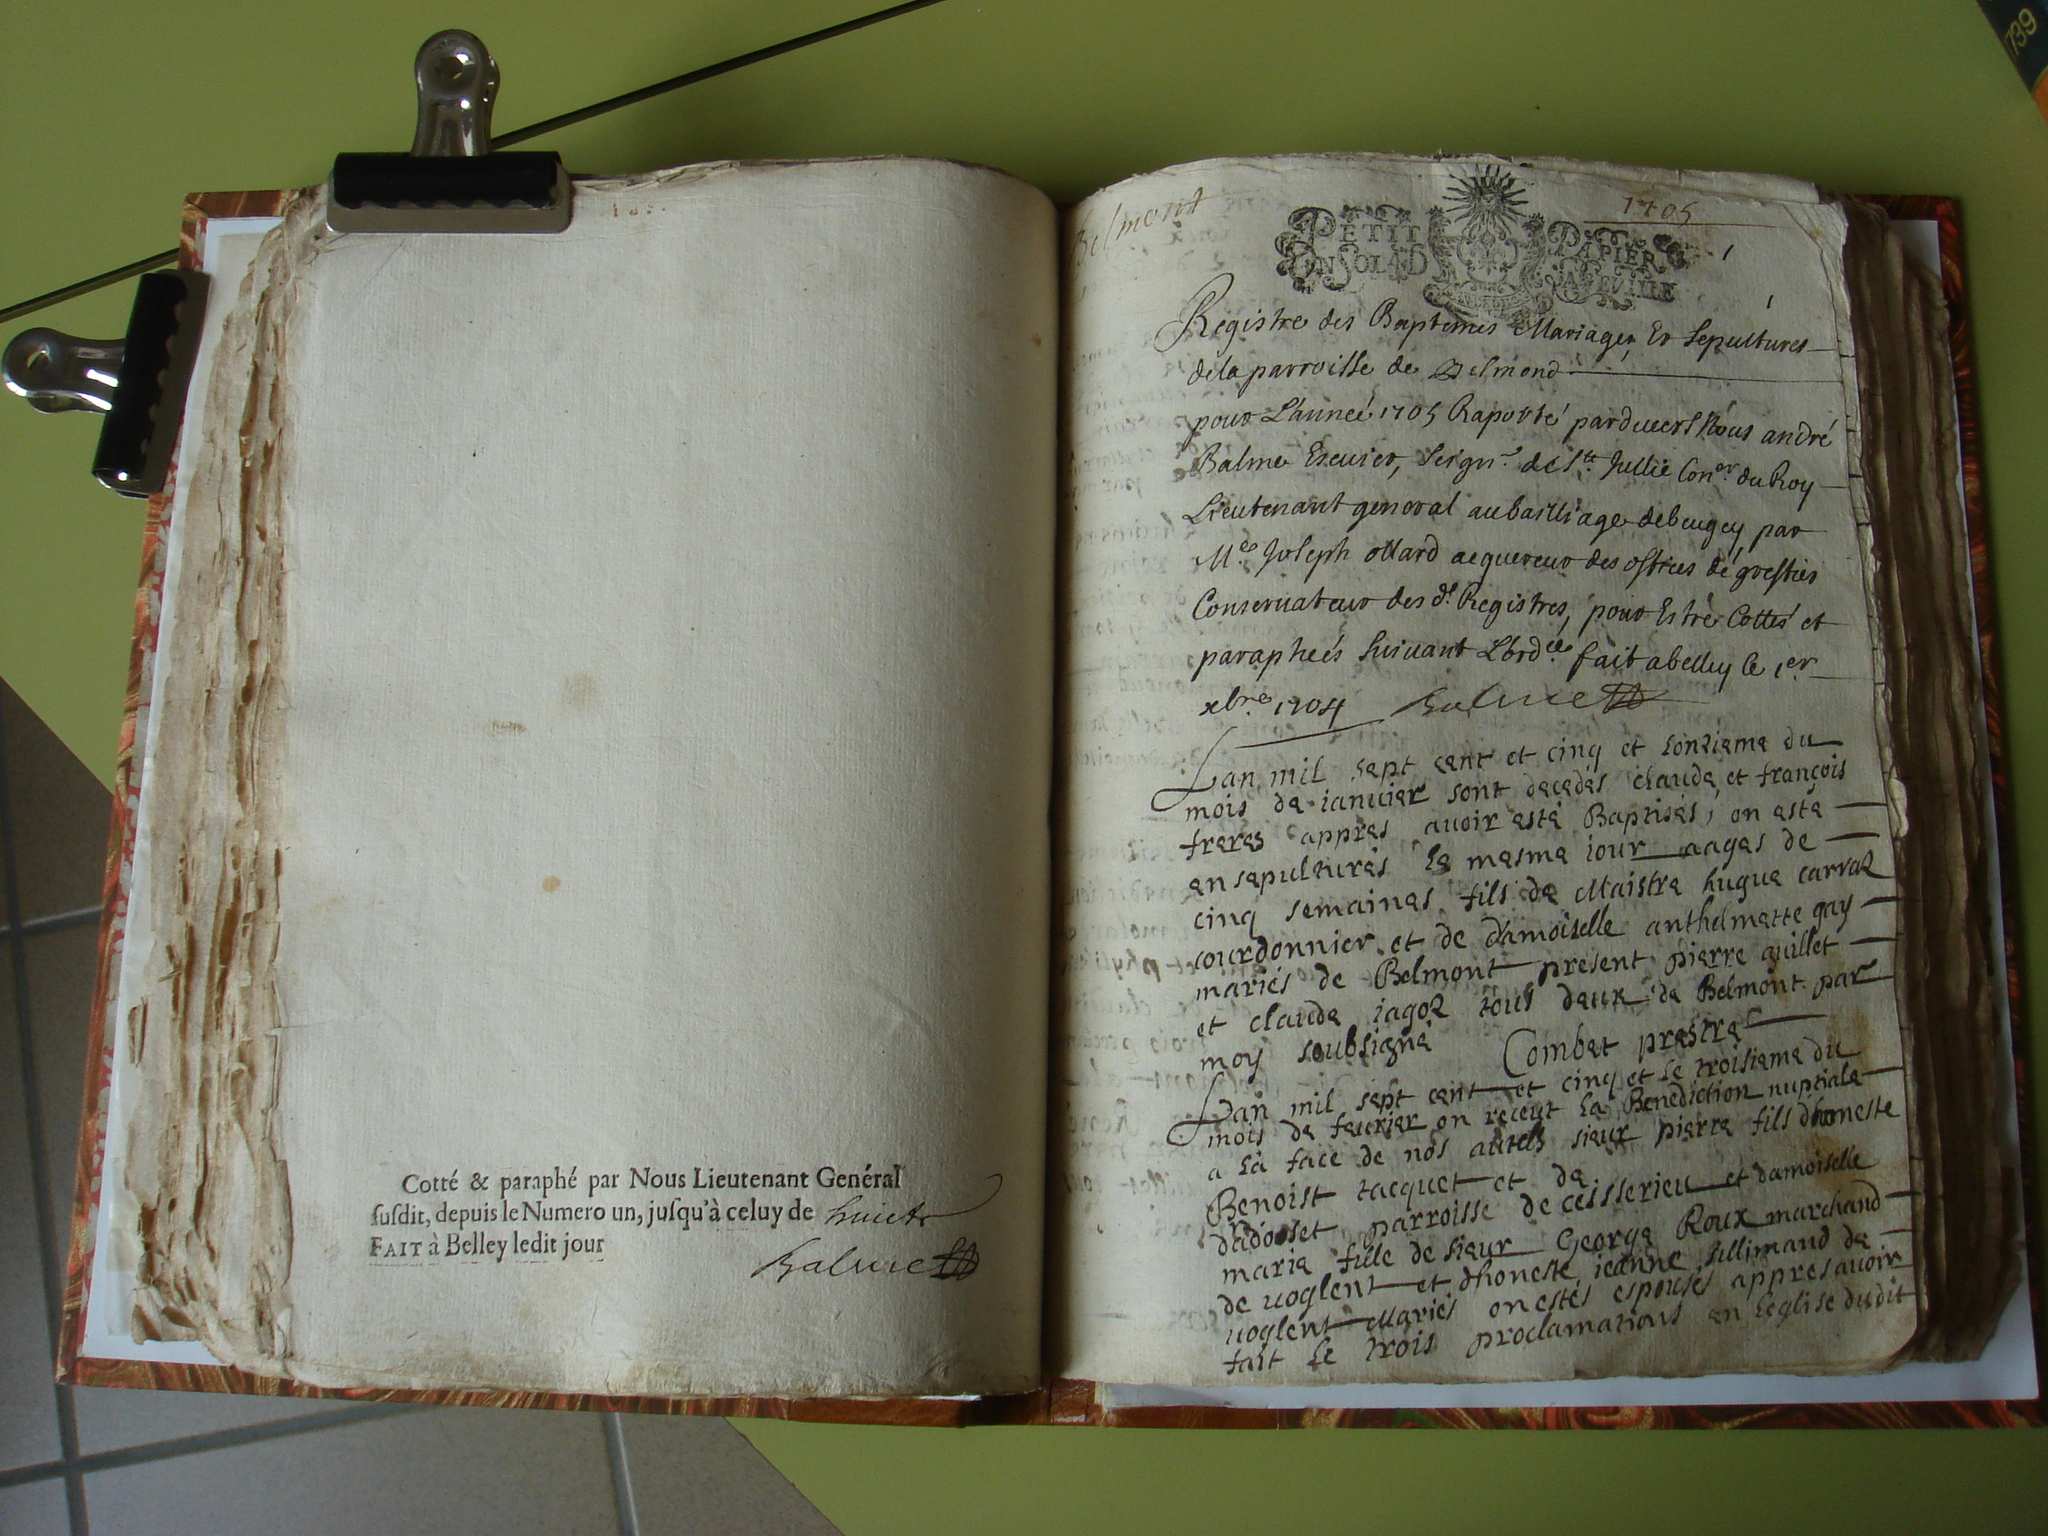 Cotté & paraphé par Nous Lieutenant Genéral
susdit, depuis le Numero un, jusqu'à celuy de huict
FAIT à Belley ledit jour
Balme
Belmont
1705
PETIT PAPIER
1
1
Registre des Baptemes Mariages Et Sepultures
de la parroisse de Belmond
pour L'anneé 1705 Raporté pardevers Nous andré
Balme Escuier, Seignr de St Jullie Coner du Roy
Lieutenant general au bailliage de beugey, par
Me Joseph ollard acquereur des offices de greffier
Conservateur des ds Registres, pour Estre Cottés et
parapheés suivant L'ordce fait a belley le 1er
xbre 1704 Balme
Lan mil sept cent et cinq et honzieme du
mois de ianvier sont decedés claude et françois
freres appres avoir esté Baptisés, on esté
ensepulturés le mesme iour aages de
cinq semaines fils de Maistre hugue carraz
courdonnier et de damoiselle anthelmette gay
mariés de Belmont present pierre guillet
et claude iagoz tous deux de Belmont par
moy soubsigné Combet prestre
Lan mil sept cent et cinq et le troisieme du
mois de feurier on receut la Benediction nuptiale
a la face de nos autels sieur pierre fils dhoneste
Benoist tacquet et de
parroisse de ceisserieu et damoiselle
marie fille de sieur George Roux marchand
de uoglent et dhoneste ieanne Jullimand de
uoglent Mariés on estés espousés appres avoir
fait le trois proclamations en leglise dudit